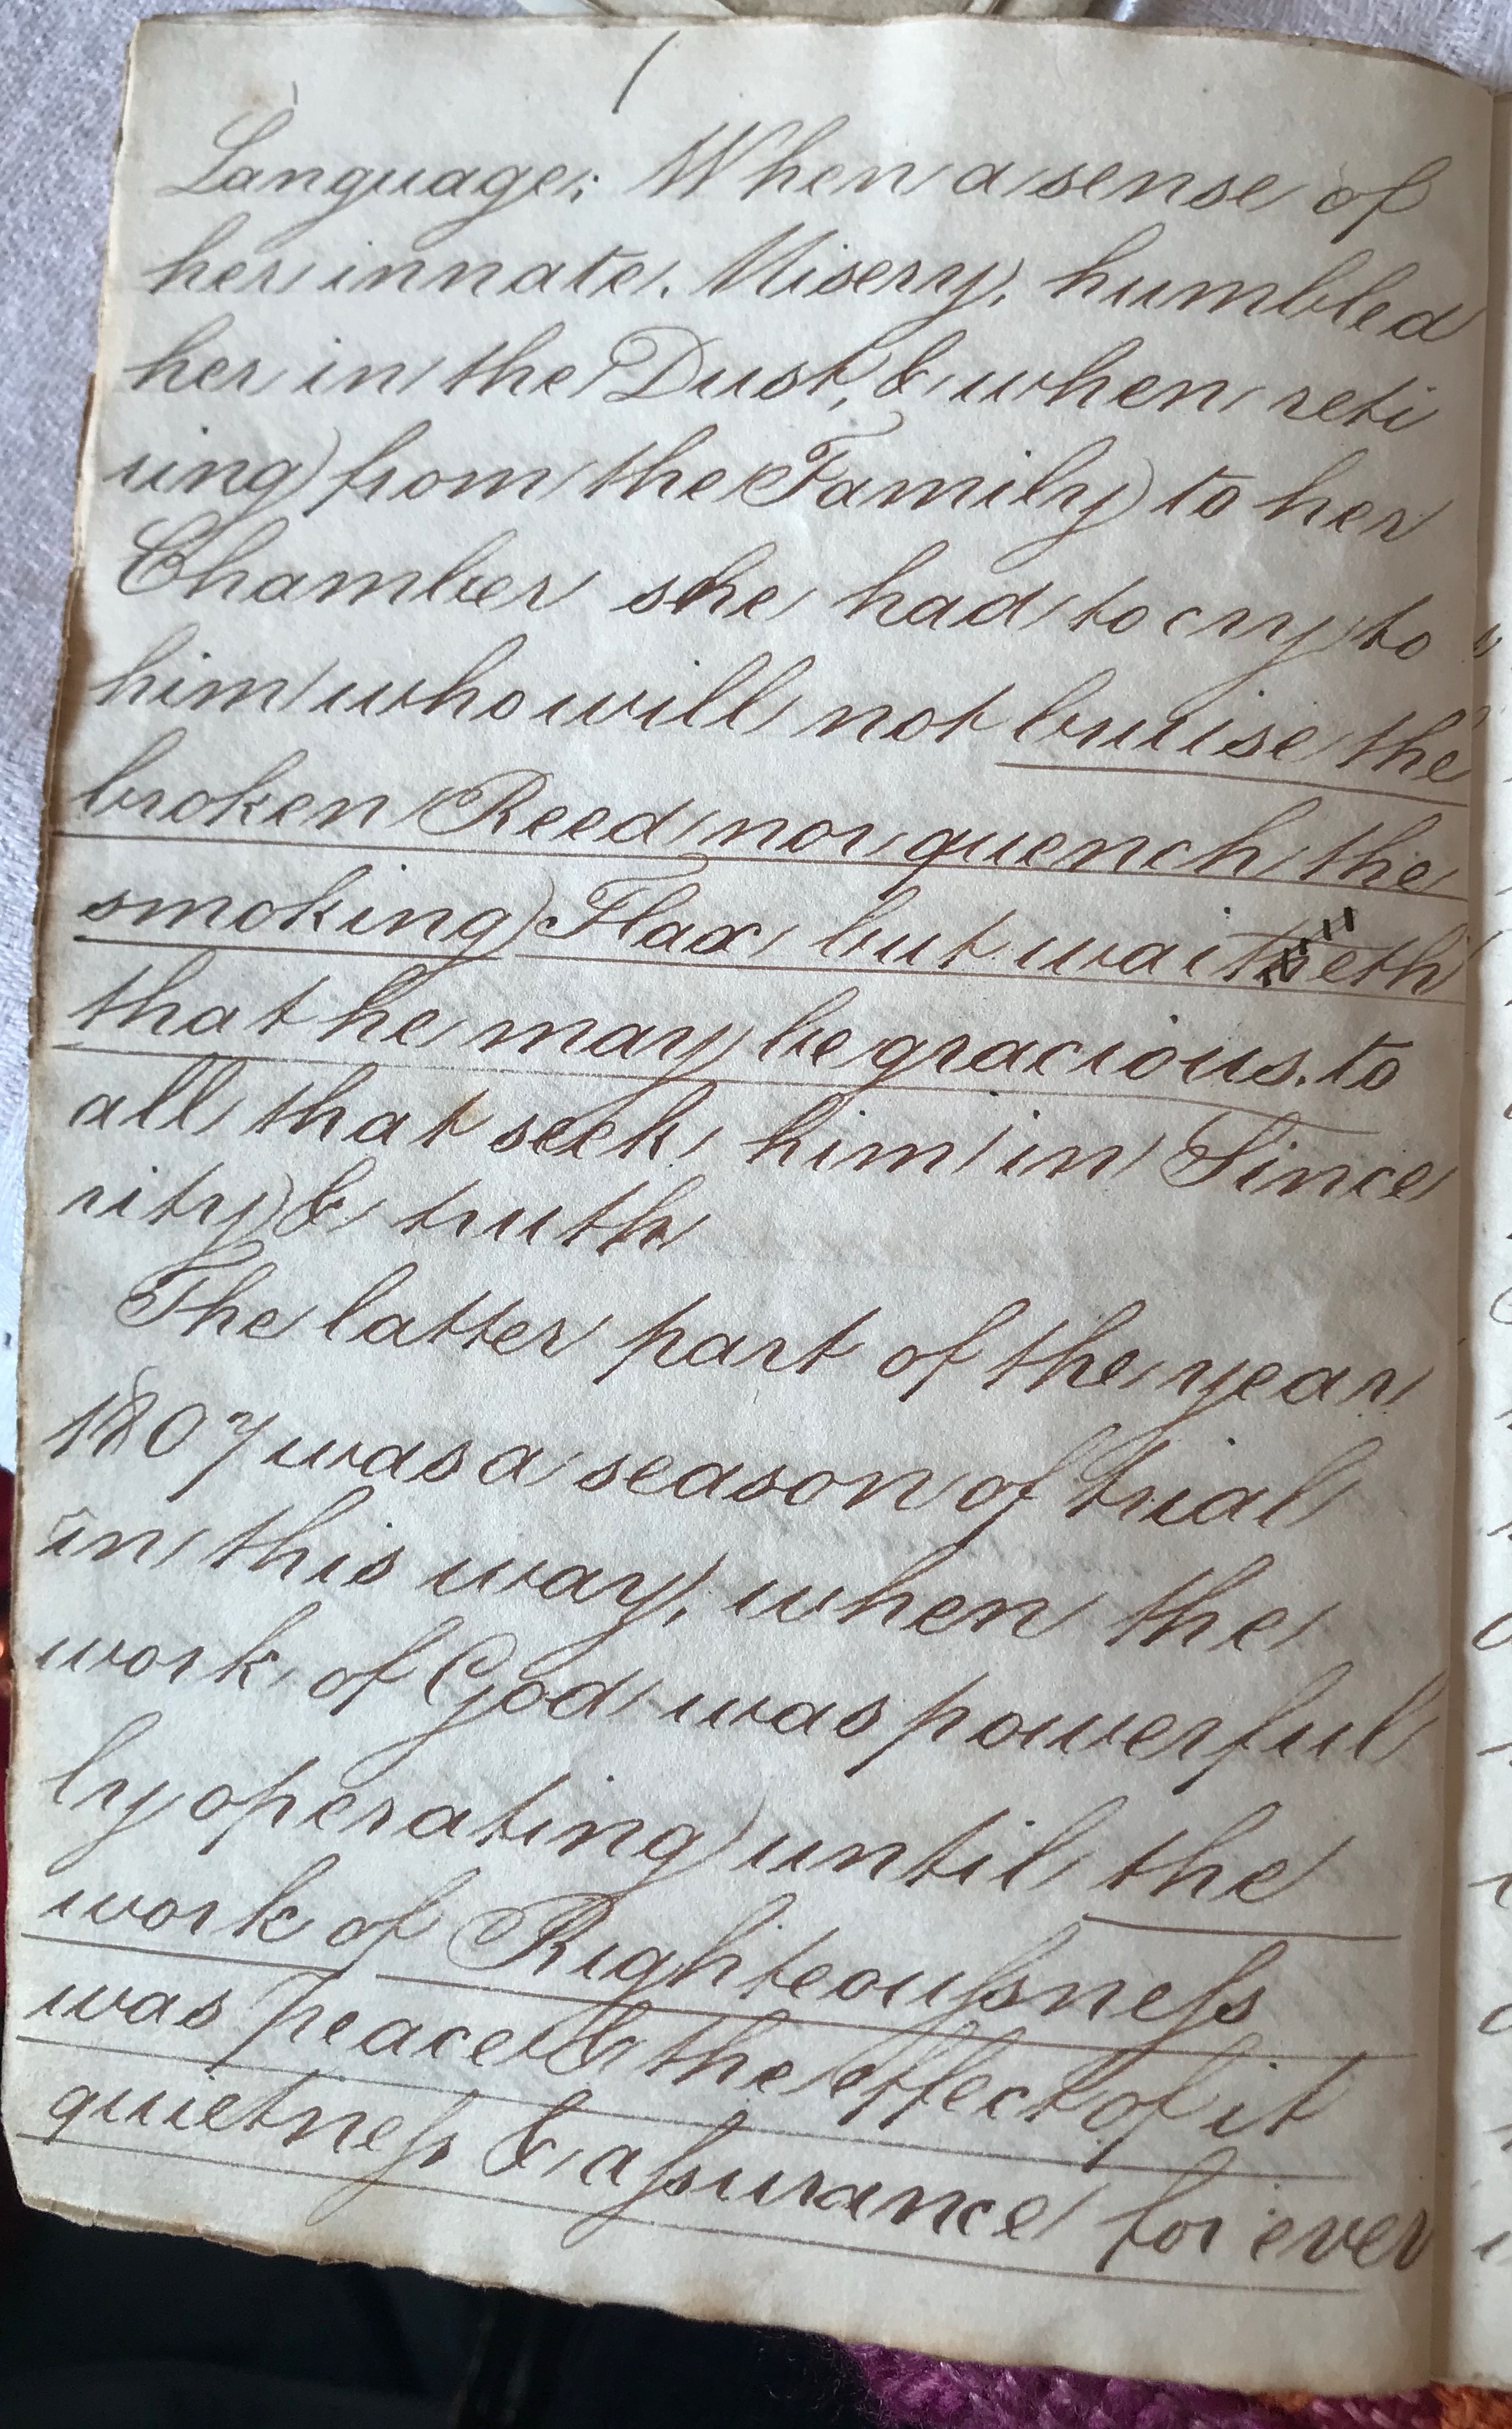 Language; When a sense of
her innate. Misery, humbled
her in the Dust, & when reti
ring from the Family to her
Chamber she had to cry to
him who will not bruise the
broken Reed nor quench the
smoking Flax, but waiteth
that he may be gracious. to
all that seek him in Since
rity & truth
The latter part of the year
1807 was a season of trial
in this way, when the
work of God was powerful
ly operating until the
work of Righteousness
was peace & the effect of it
quietness & assurance for ever